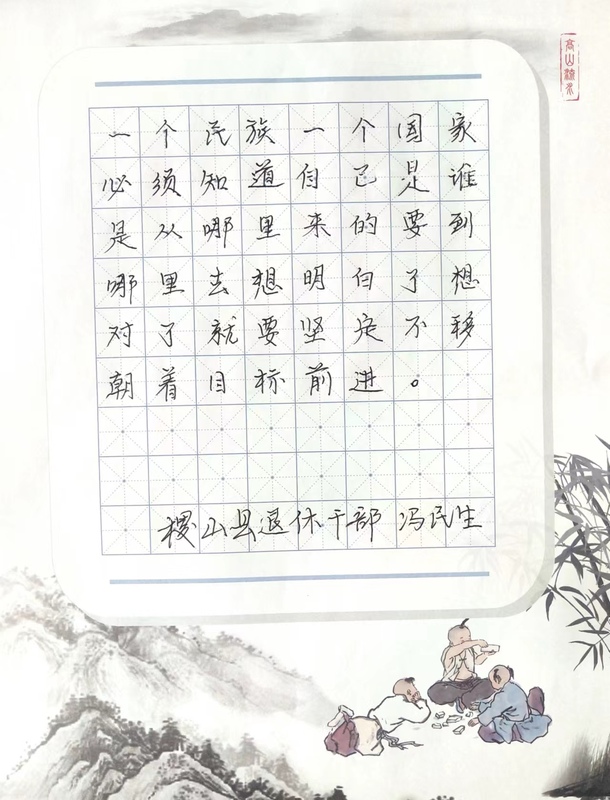 高山流水
一个民族一个国家
必须知道自己是谁
是从哪里来的要到
哪里去想明白了想
对了就要坚定不移
朝着目标前进。
稷山县退休干部 冯民生